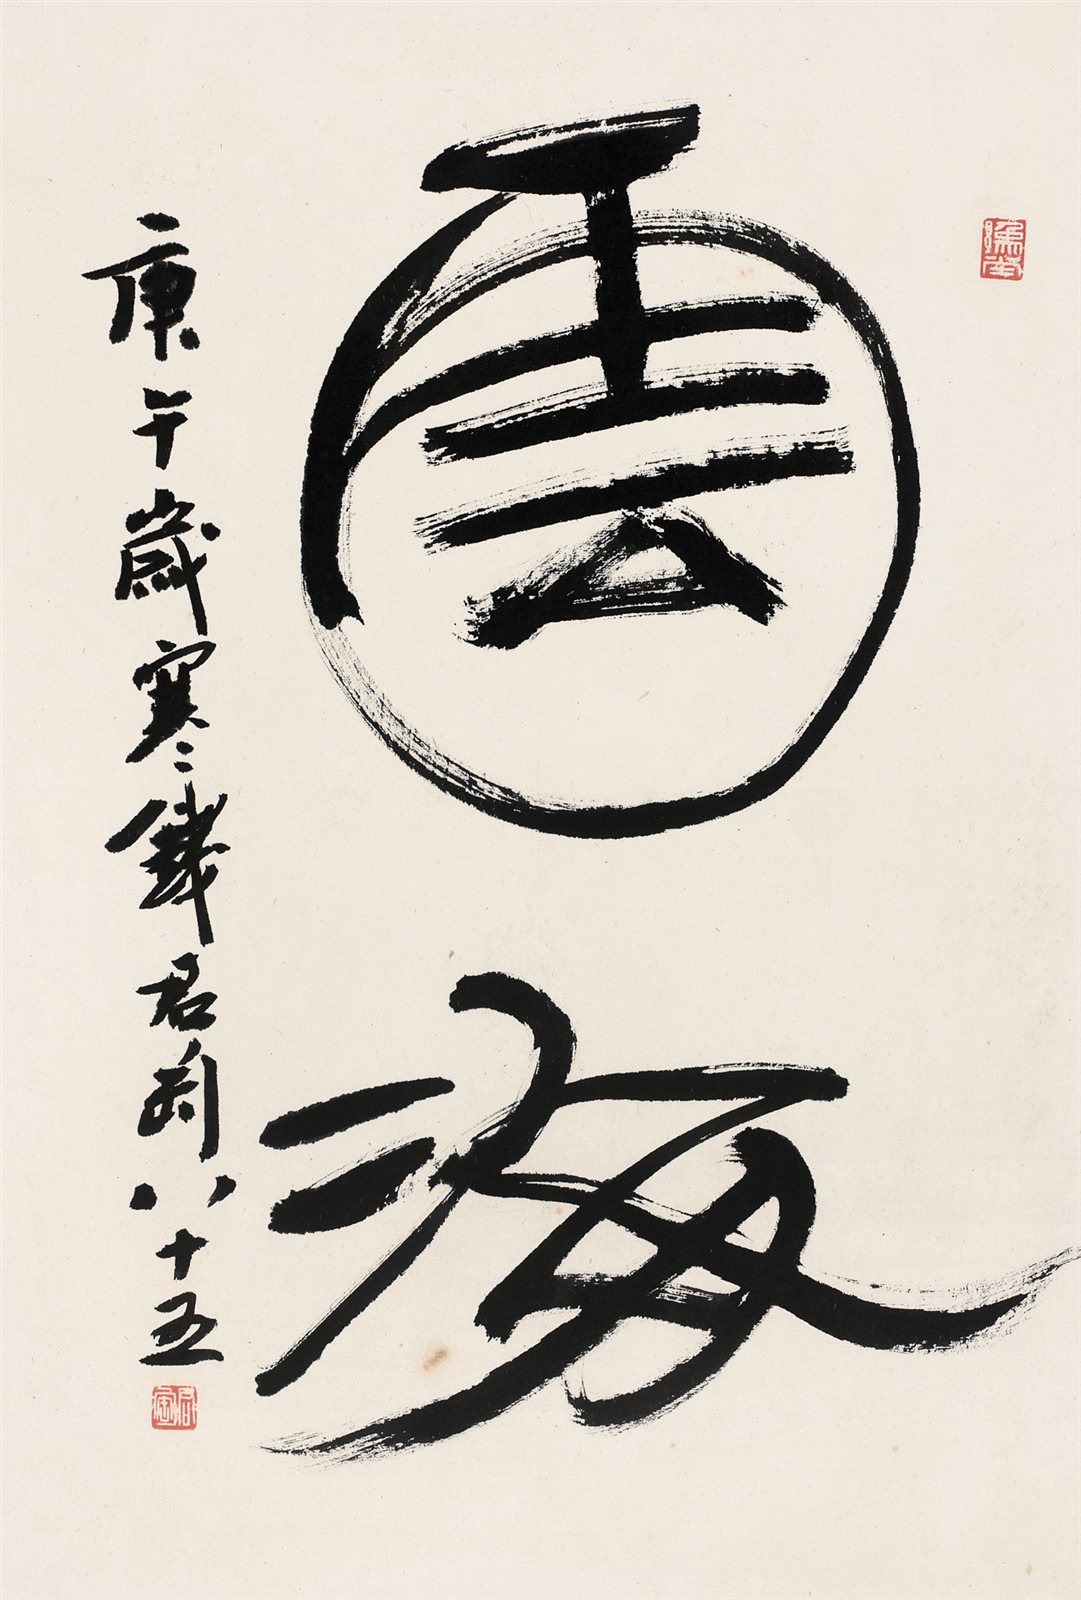 雲海
庚午歲寒錢君匋八十五